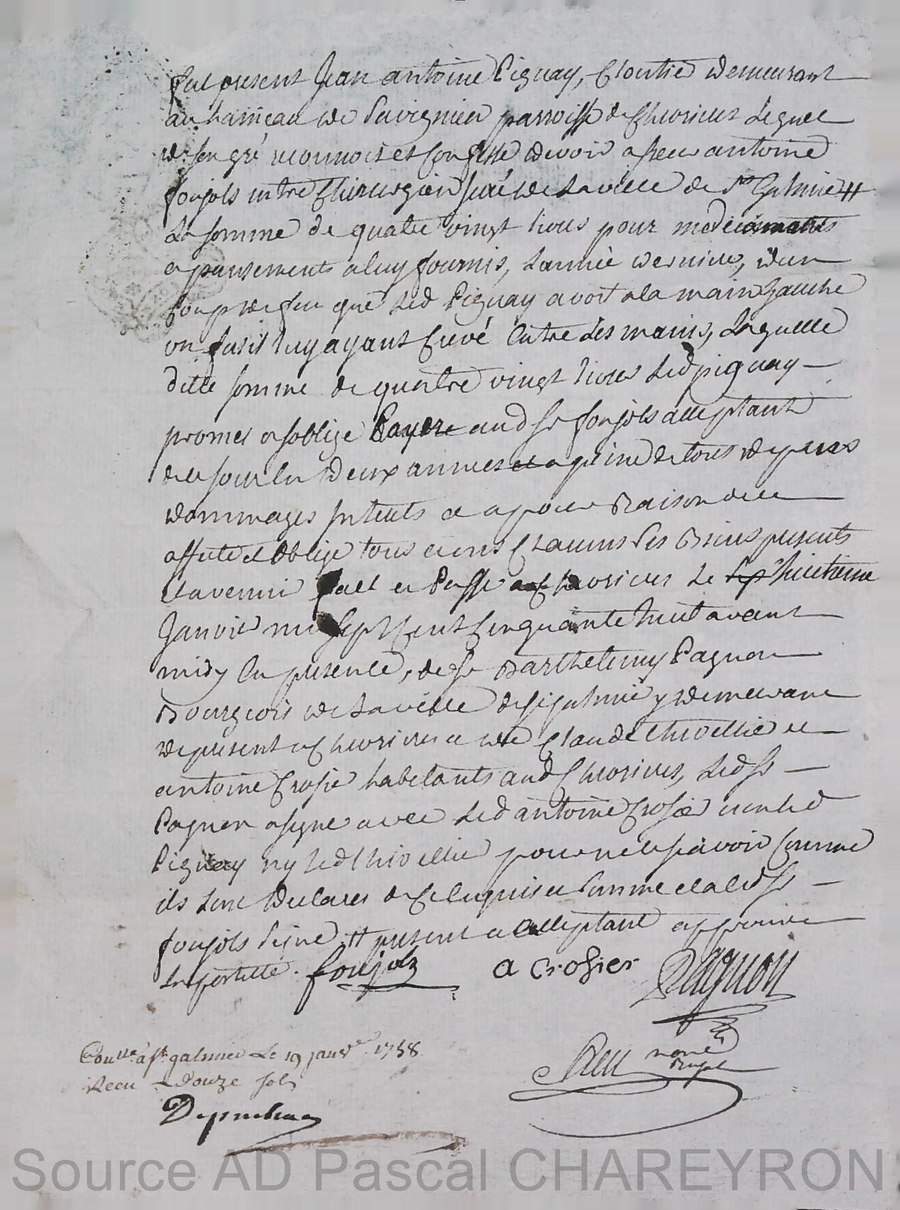 fut present Jean antoine Piguay, Cloutie demeurant
au hameau de Savignieu parroisse de Chevrieres Lequel
de son gré reconnoit et Confesse devoir a sieur antoine
foujols mtre Chirurgien juré de La ville de St Galmie #
La somme de quatre vingt livres pour medicamants
et pansements a luy fournis, Lannée derniere, d'un
Coup de feu que Led Piguay avoit a la main Gauche
un fusil luy ayant Crevé Entre Les mains, Laquelle
ditte somme de quatre vingt livres Led piguay
promet et soblige Payer aud Sr foujols acceptant
de ce jour En Deux années a peine de tous depens
dommages Interets et a pour Raison de ce
affecté et Obligé tous et uns Chacuns Ses Biens presents
Et avenir fait et Passé a Chevrieres Le huitieme
Janvier mil Sept Cent Cinquante huit avant
midy En presence, de Sr Barthelemy Pagnon
Bourgeois de La ville de St galmie y demeurant
de present a Chevrieres et de Claude thiollie et
antoine Crosie habitants aud Chevrieres, Led Sr
Pagnon a signé avec Led antoine Crosie non led
Piguay ny led thiollie pour ne le scavoir Comme
ils Lont declaré de Ce Enquis et Sommé et a led Sr
foujols Signé # present et acceptant approuvé
La postille. foujols a crosier Pagnon
Conlle à st. galmier Le 19 janvr. 1758
Recu Douze sols